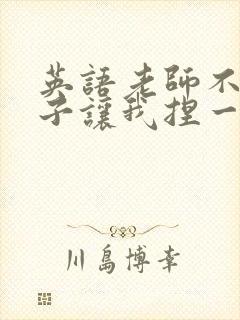 英語老師不
子讓我捏一
川島博幸